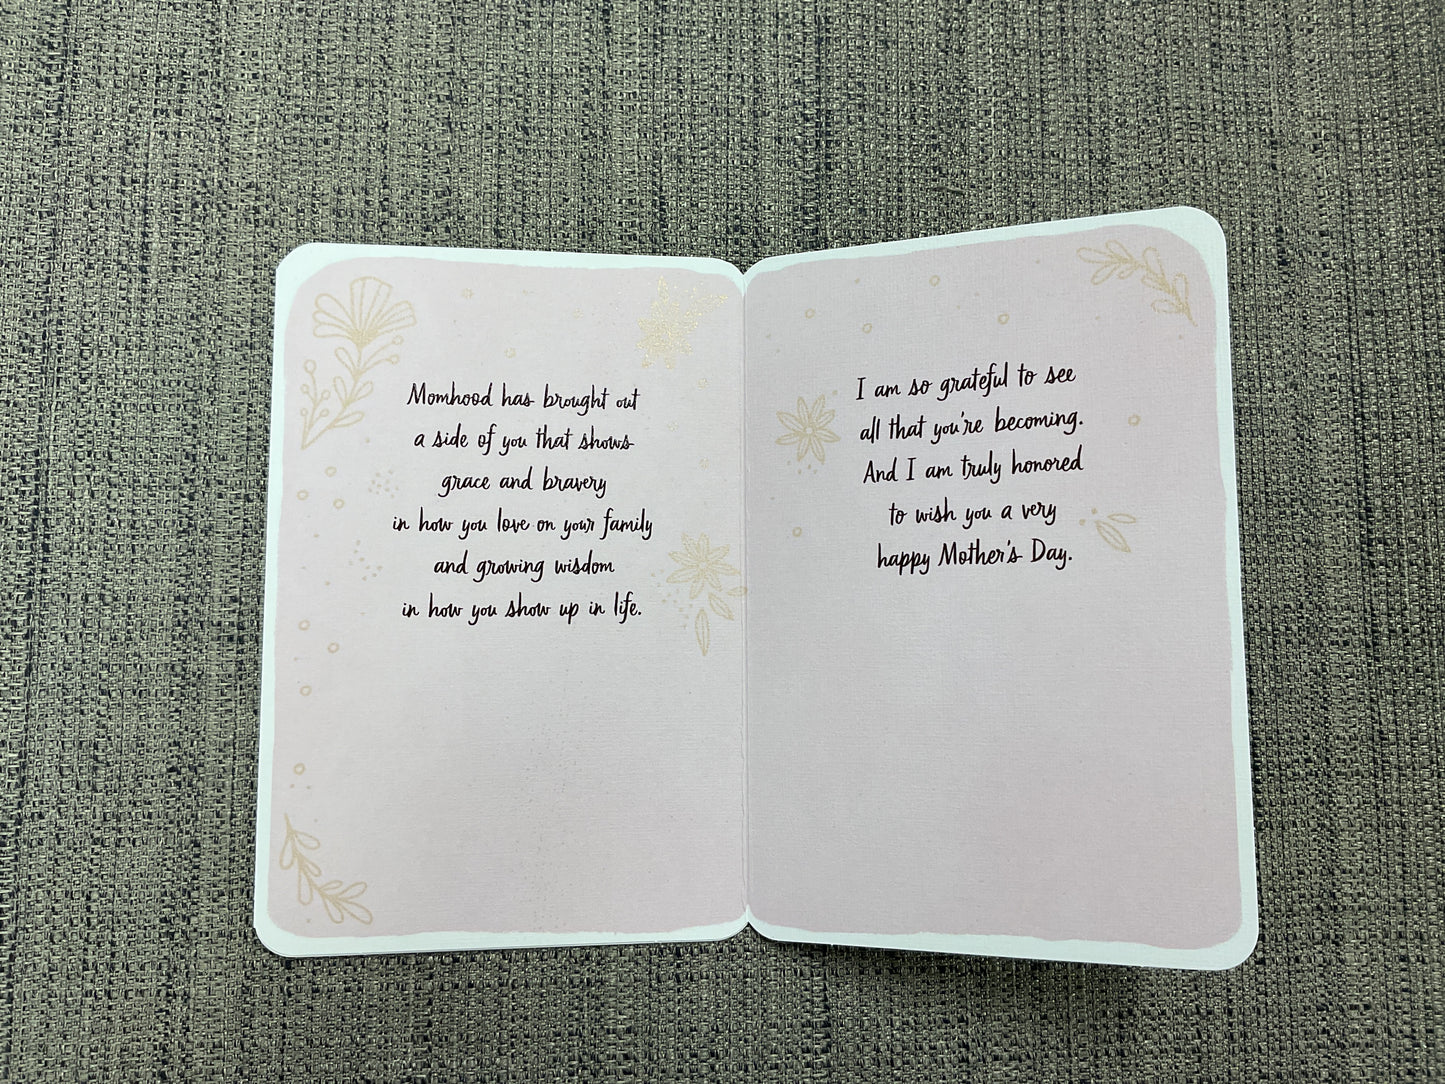 Momhood has brought out
a side of you that shows
grace and bravery
in how you love on your family
and growing wisdom
in how you show up in life.
I am so grateful to see
all that you're becoming.
And I am truly honored
to wish you a very
happy Mother's Day.